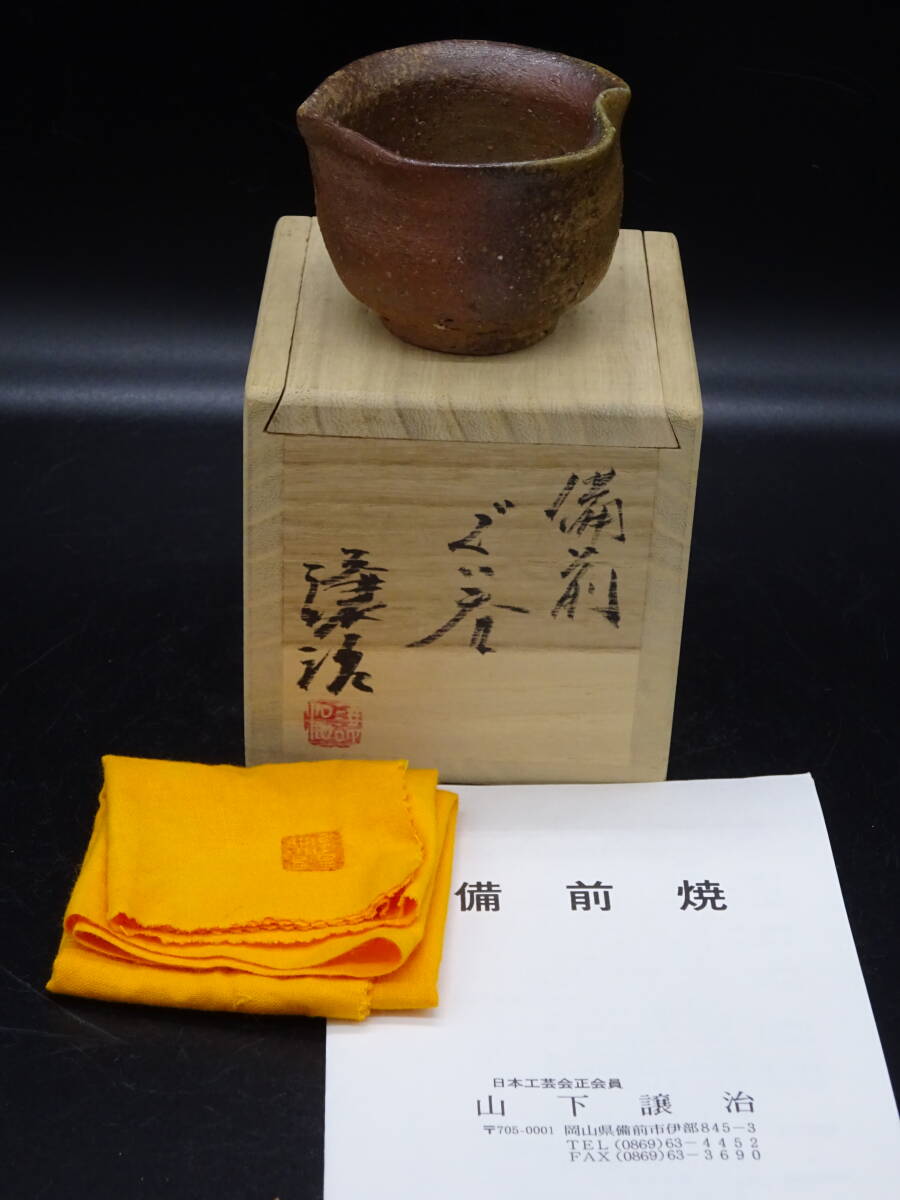 備前
ぐい呑
譲治
備前焼
日本工芸会正会員
山下譲治
〒705-0001 岡山県備前市伊部845-3
TEL(0869)63-4452
FAX(0869)63-3690